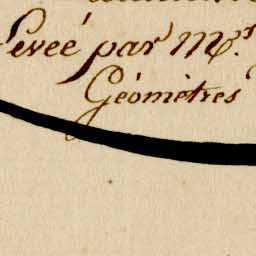 Leveé par M.rs
Géomètres